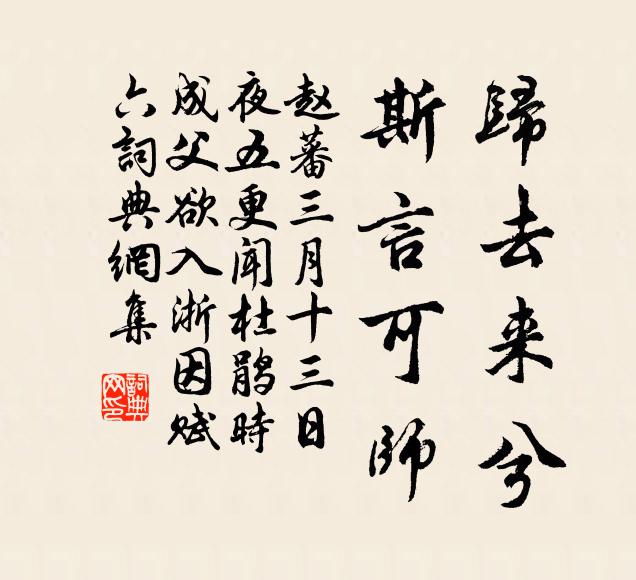 歸去來兮
斯言可師
赵蕃三月十三日
夜五更聞杜鵑時
成父欲入浙因赋
六詞典網集
詞典
网印